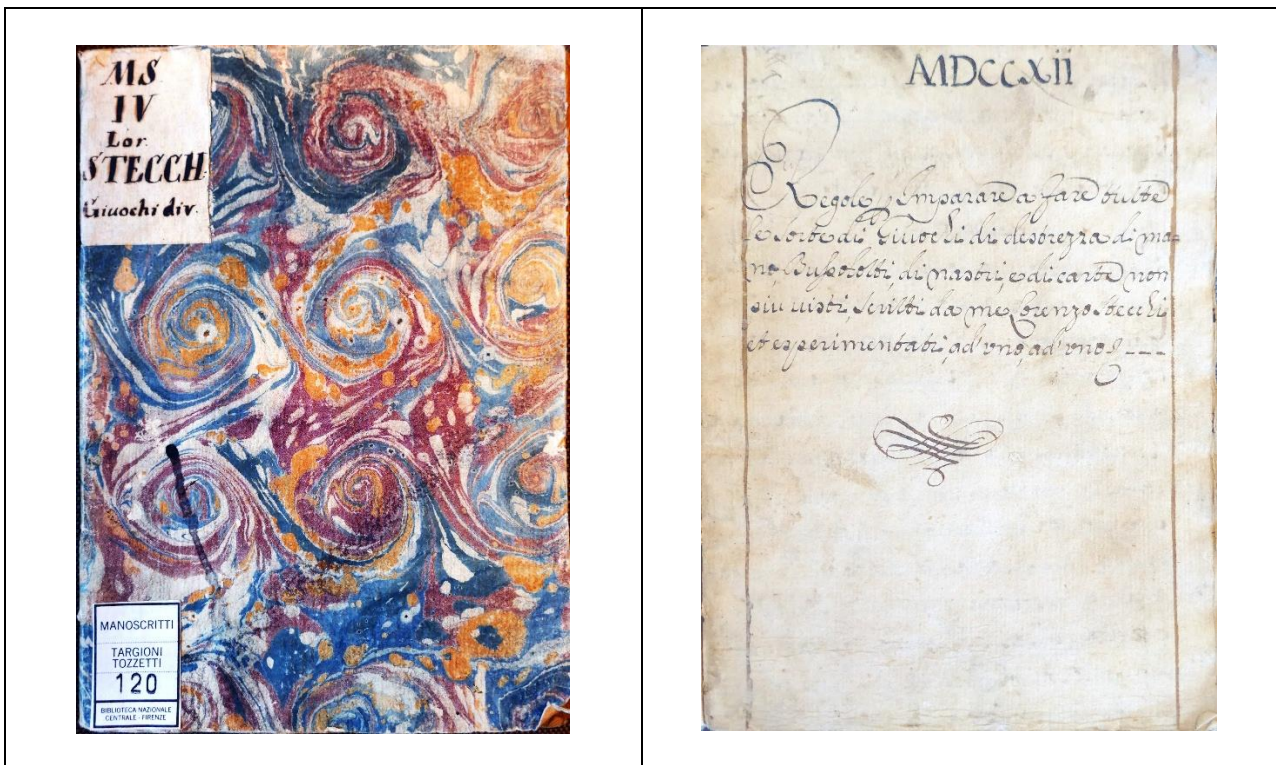 MS
IV
Lor.
STECCH.
Giuochi div.
MANOSCRITTI
TARGIONI
TOZZETTI
120
BIBLIOTECA NAZIONALE
CENTRALE - FIRENZE
MDCCXii
Regole p Imparare a fare tutte
le sorte di Giuochi di destrezza di ma=
no, Bussolotti, di nastri, e di carte non
piu uisti, scritti da me Lorenzo Stecchi
et esperimentati, ad' vno, ad' vno ----